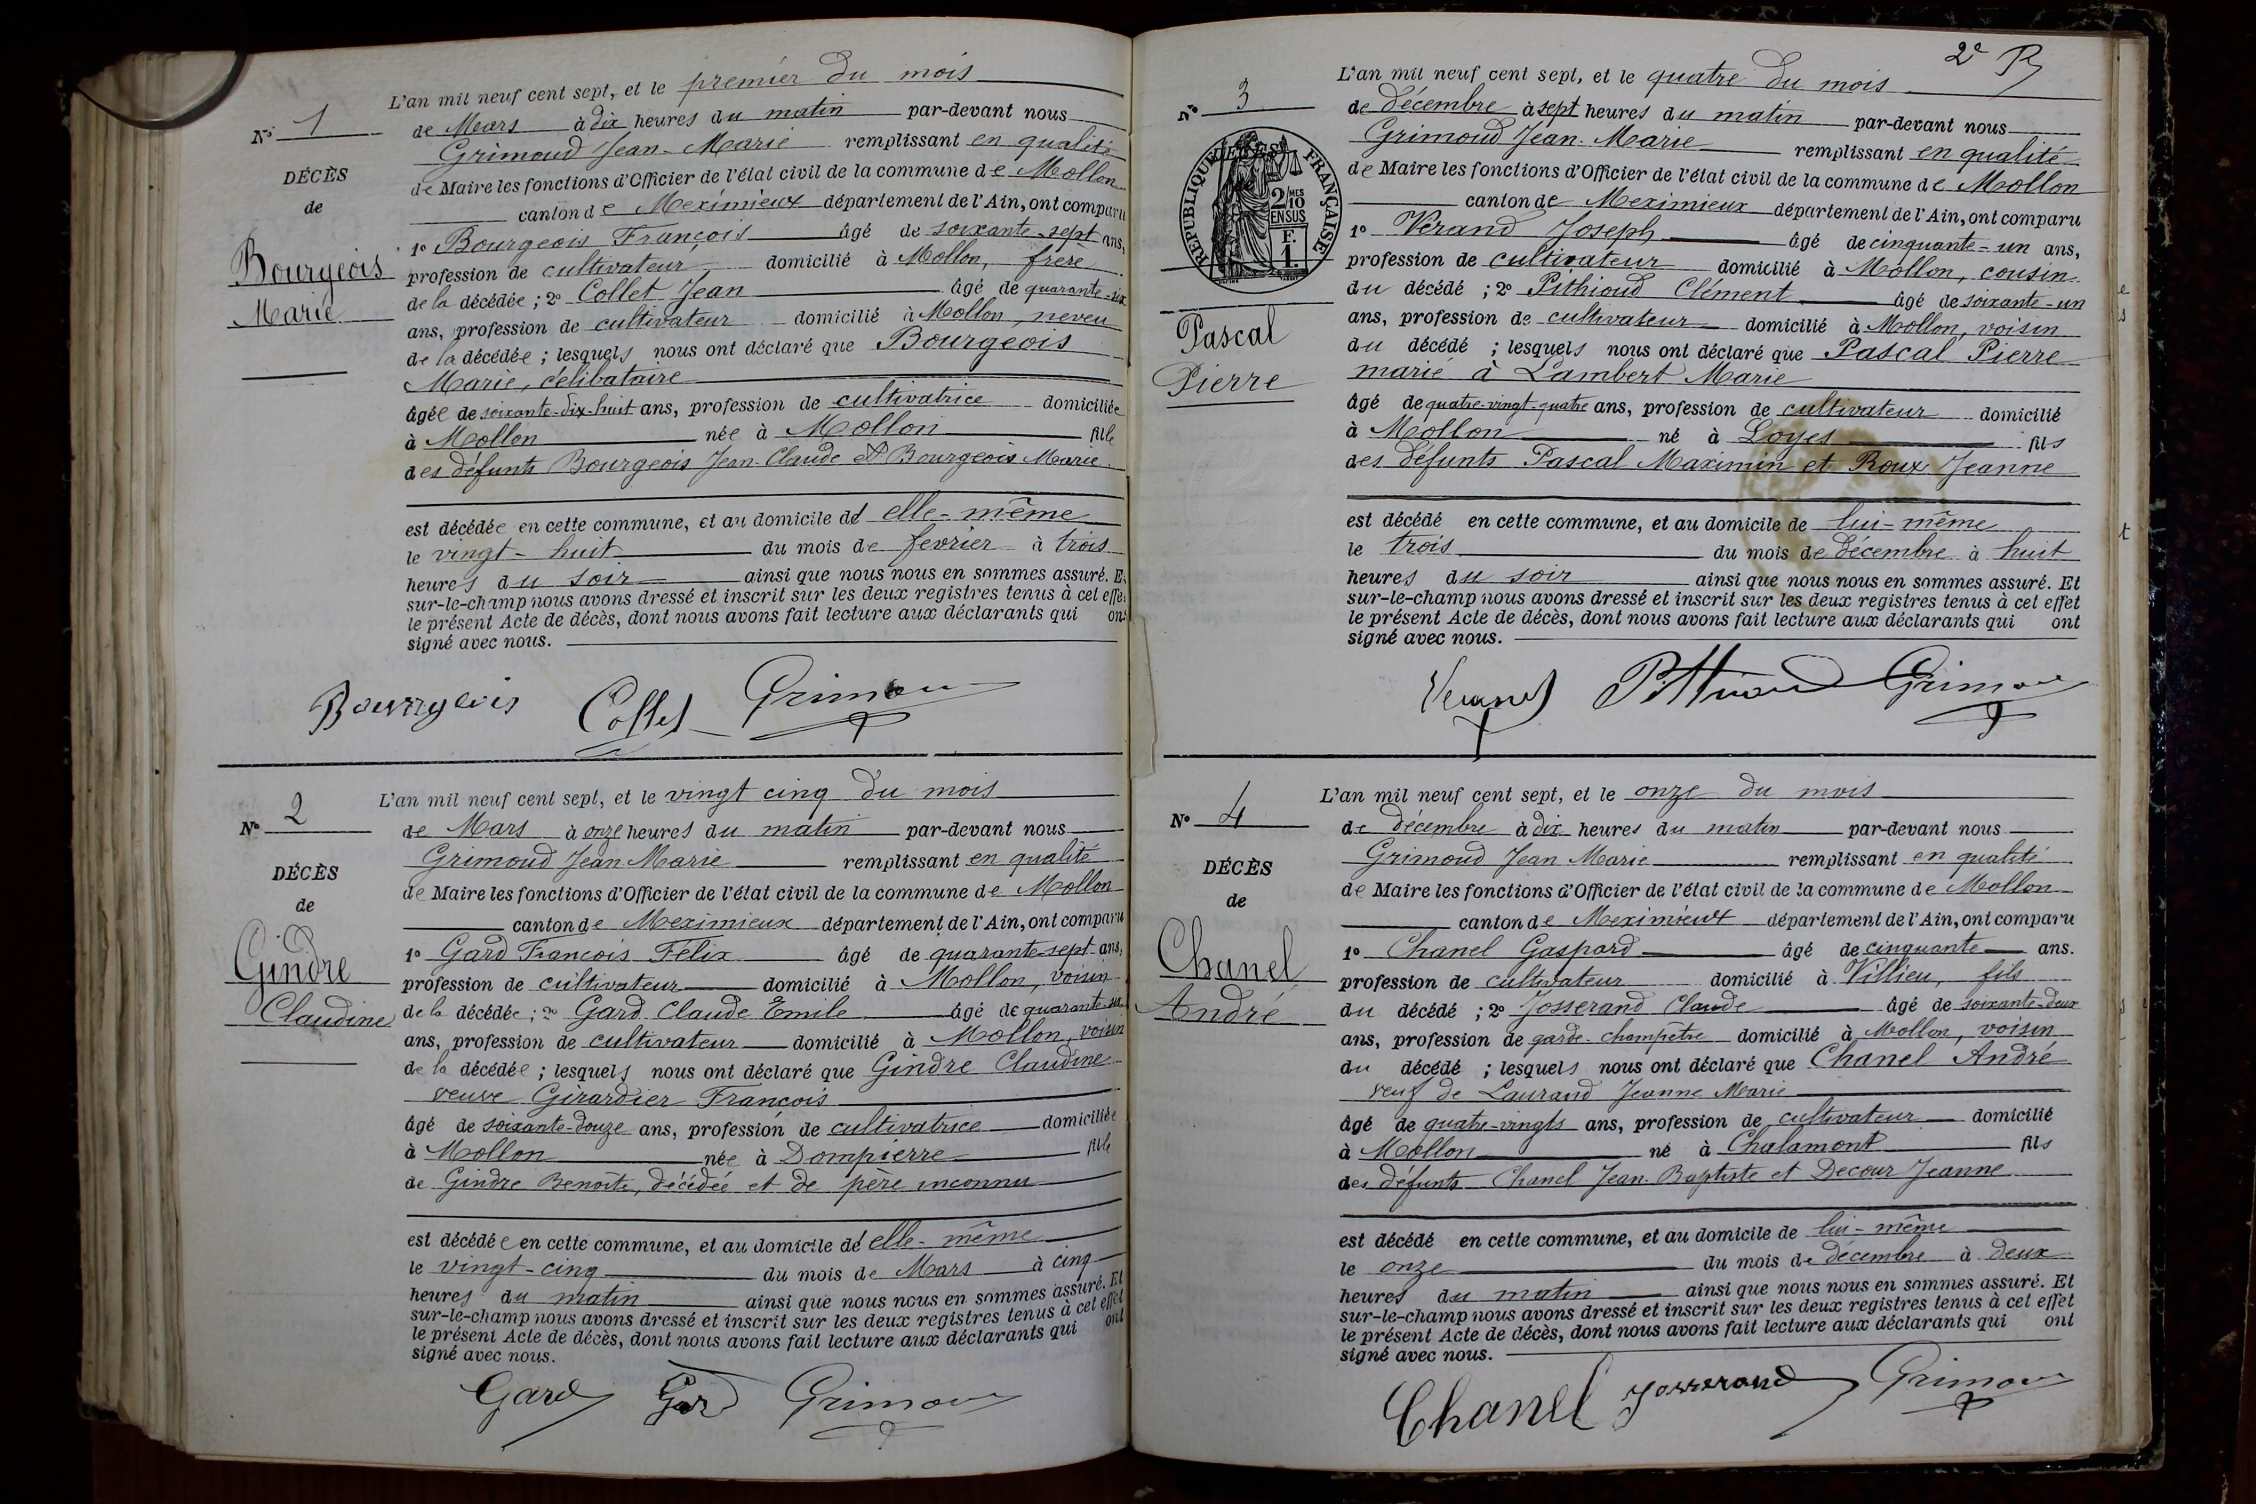 L'an mil neuf cent sept, et le premier du mois
N° 1
de Mars à dix heures du matin par-devant nous
Grimoud Jean-Marie remplissant en qualité
DÉCÈS
de Maire les fonctions d'Officier de l'état civil de la commune de Mollon
de
canton de Meximieux département de l'Ain, ont comparu
1° Bourgeois François âgé de soixante-sept ans,
Bourgeois
profession de cultivateur domicilié à Mollon, frère
Marie
de la décédée ; 2° Collet Jean âgé de quarante-six
ans, profession de cultivateur domicilié à Mollon, neveu
de la décédée ; lesquels nous ont déclaré que Bourgeois
Marie, célibataire
âgée de soixante-dix-huit ans, profession de cultivatrice domiciliée
à Mollon née à Mollon fille
des défunts Bourgeois Jean-Claude et Bourgeois Marie
est décédée en cette commune, et au domicile de elle-même
le vingt-huit du mois de fevrier à trois
heures du soir ainsi que nous nous en sommes assuré. Et
sur-le-champ nous avons dressé et inscrit sur les deux registres tenus à cet effet
le présent Acte de décès, dont nous avons fait lecture aux déclarants qui ont
signé avec nous.
Bourrgeois Collet Grimou
L'an mil neuf cent sept, et le vingt cinq du mois
N° 2
de Mars à onze heures du matin par-devant nous
Grimoud Jean-Marie remplissant en qualité
DÉCÈS
de Maire les fonctions d'Officier de l'état civil de la commune de Mollon
de
canton de Meximieux département de l'Ain, ont comparu
1° Gard François Félix âgé de quarante-sept ans,
Gindre
profession de cultivateur domicilié à Mollon, voisin
Claudine
de la décédée ; 2° Gard Claude Emile âgé de quarante-six
ans, profession de cultivateur domicilié à Mollon, voisin
de la décédée ; lesquels nous ont déclaré que Gindre Claudine
veuve Girardier François
âgé de soixante-douze ans, profession de cultivatrice domiciliée
à Mollon née à Dompierre fille
de Gindre Benoîte, décédée et de père inconnu
est décédée en cette commune, et au domicile de elle-même
le vingt-cinq du mois de Mars à cinq
heures du matin ainsi que nous nous en sommes assuré. Et
sur-le-champ nous avons dressé et inscrit sur les deux registres tenus à cet effet
le présent Acte de décès, dont nous avons fait lecture aux déclarants qui ont
signé avec nous.
Gard Gard Grimou
2e
L'an mil neuf cent sept, et le quatre du mois
N° 3
de décembre à sept heures du matin par-devant nous
Grimoud Jean-Marie remplissant en qualité
RÉPUBLIQUE FRANÇAISE
2/10 MES
EN SUS
F.
1.
de Maire les fonctions d'Officier de l'état civil de la commune de Mollon
canton de Meximieux département de l'Ain, ont comparu
1° Vérand Joseph âgé de cinquante-un ans,
profession de cultivateur domicilié à Mollon, cousin
du décédé ; 2° Pithioud Clément âgé de soixante-un
ans, profession de cultivateur domicilié à Mollon, voisin
Pascal
du décédé ; lesquels nous ont déclaré que Pascal Pierre
Pierre
marié à Lambert Marie
âgé de quatre-vingt-quatre ans, profession de cultivateur domicilié
à Mollon né à Loyes fils
des défunts Pascal Maximin et Roux Jeanne
est décédé en cette commune, et au domicile de lui-même
le trois du mois de décembre à huit
heures du soir ainsi que nous nous en sommes assuré. Et
sur-le-champ nous avons dressé et inscrit sur les deux registres tenus à cet effet
le présent Acte de décès, dont nous avons fait lecture aux déclarants qui ont
signé avec nous.
Verand Pithioud Grimou
L'an mil neuf cent sept, et le onze du mois
N° 4
de décembre à dix heures du matin par-devant nous
Grimoud Jean Marie remplissant en qualité
DÉCÈS
de Maire les fonctions d'Officier de l'état civil de la commune de Mollon
de
canton de Meximieux département de l'Ain, ont comparu
1° Chanel Gaspard âgé de cinquante ans.
Chanel
profession de cultivateur domicilié à Villieu, fils
André
du décédé ; 2° Josserand Claude âgé de soixante-deux
ans, profession de garde-champêtre domicilié à Mollon, voisin
du décédé ; lesquels nous ont déclaré que Chanel André
veuf de Laurand Jeanne Marie
âgé de quatre-vingts ans, profession de cultivateur domicilié
à Mollon né à Chalamont fils
des défunts Chanel Jean-Baptiste et Decour Jeanne
est décédé en cette commune, et au domicile de lui-même
le onze du mois de décembre à deux
heures du matin ainsi que nous nous en sommes assuré. Et
sur-le-champ nous avons dressé et inscrit sur les deux registres tenus à cet effet
le présent Acte de décès, dont nous avons fait lecture aux déclarants qui ont
signé avec nous.
Chanel Josserand Grimou